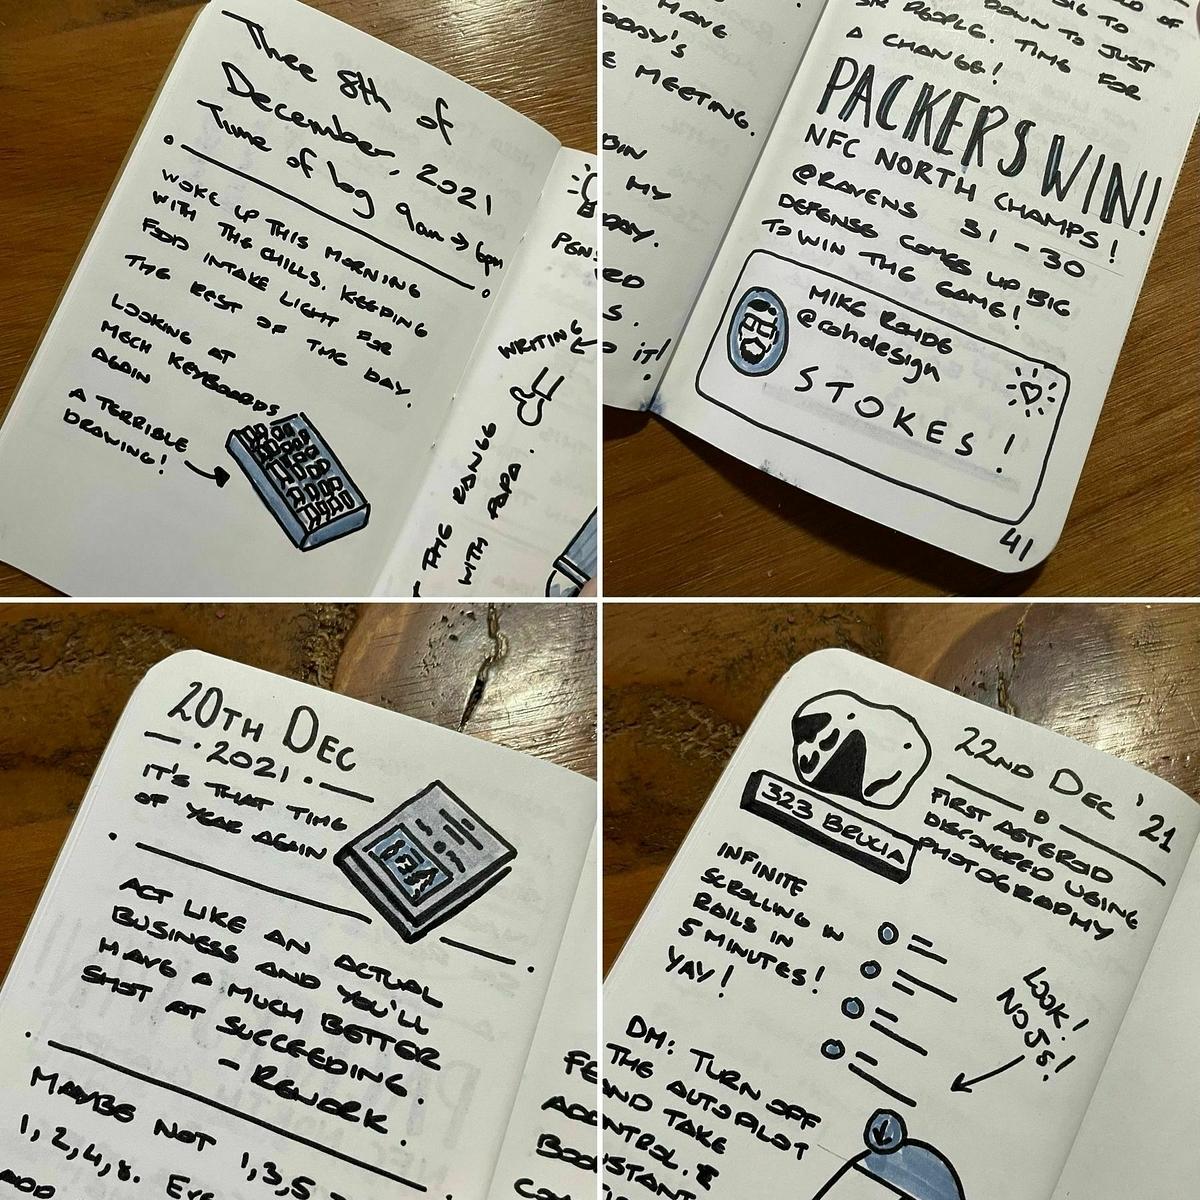 Thee 8th of
December, 2021
Time of log 9am → 6pm
WOKE UP THIS MORNING
WITH THE CHILLS. KEEPING
FOOD INTAKE LIGHT FOR
THE REST OF THE DAY.
LOOKING AT
MECH KEYBOARDS
AGAIN
A TERRIBLE
DRAWING!
WRITING
THE RANGE
WITH PAPA.
HAVE
MEETING.
MY
IT!
SIX PEOPLE. TIME FOR
DOWN TO JUST
A CHANGE!
PACKERS WIN!
NFC NORTH CHAMPS!
@RAVENS 31-30
DEFENSE COMES UP BIG
TO WIN THE GAME!
MIKE ROHDE
@rohdesign
STOKES!
41
20TH DEC
2021
IT'S THAT TIME
OF YEAR AGAIN
ACT LIKE AN ACTUAL
BUSINESS AND YOU'LL
HAVE A MUCH BETTER
SHOT AT SUCCEEDING.
- REWORK.
MAYBE NOT 1,3,5 -
1,2,4,8.
22ND DEC '21
323 BRUCIA
FIRST ASTEROID
DISCOVERED USING
PHOTOGRAPHY
INFINITE
SCROLLING IN
RAILS IN
5 MINUTES!
YAY!
LOOK!
NO JS!
DM: TURN OFF
THE AUTOPILOT
AND TAKE